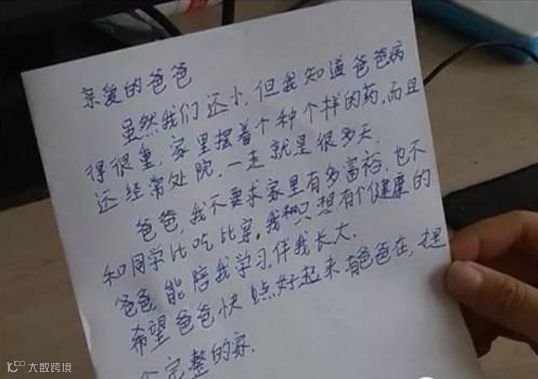 亲爱的爸爸
虽然我们还小,但我知道爸爸病
得很重,家里摆着个种个样的药,而且
还经常处院,一走就是很多天.
爸爸,我不要求家里有多富裕,也不
和同学比吃比穿,我只想有个健康的
爸爸,能陪我学习,伴我长大.
希望爸爸快点好起来,有爸爸在,才是
个完整的家.
大数跨境